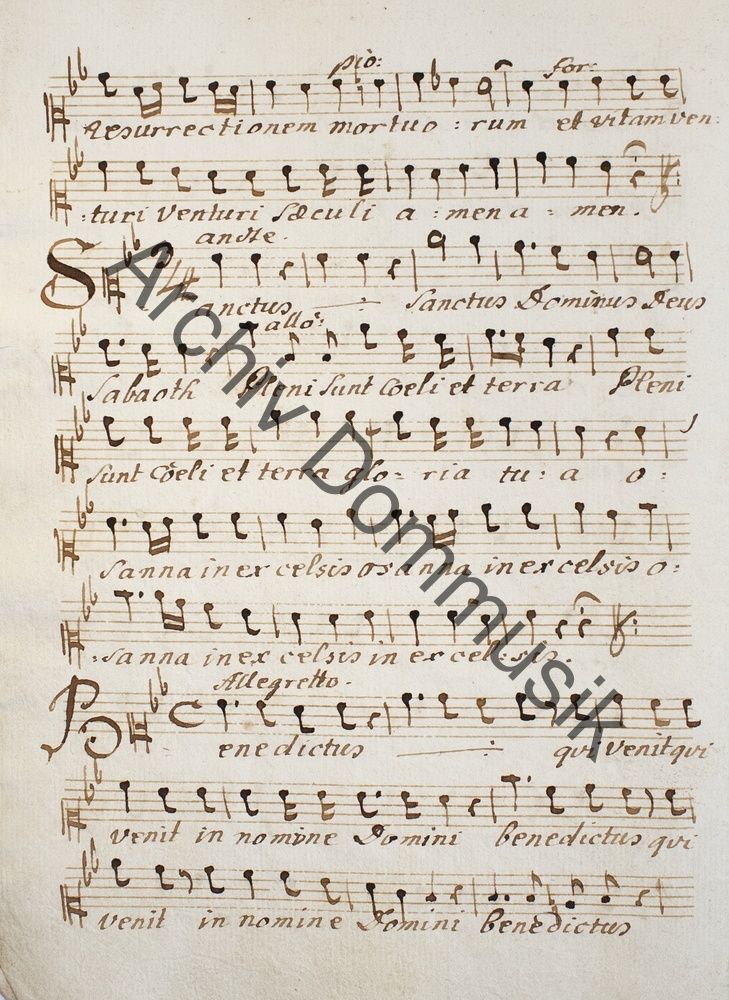 pio: for:
Resurrectionem mortuo : rum et vitam ven:
:turi venturi Sæculi a : men a - men.
andte.
Sanctus Sanctus Dominus Deus
allo:
Sabaoth Pleni Sunt Coeli et terra Pleni
Sunt Coeli et terra glo : ria tu : a o :
Sanna in ex celsis osanna in ex celsis o :
:Sanna in ex celsis in ex cel : sis.
Allegretto.
Benedictus qui venit qui
venit in nomine Domini benedictus qui
venit in nomine Domini benedictus
Archiv Dommusik